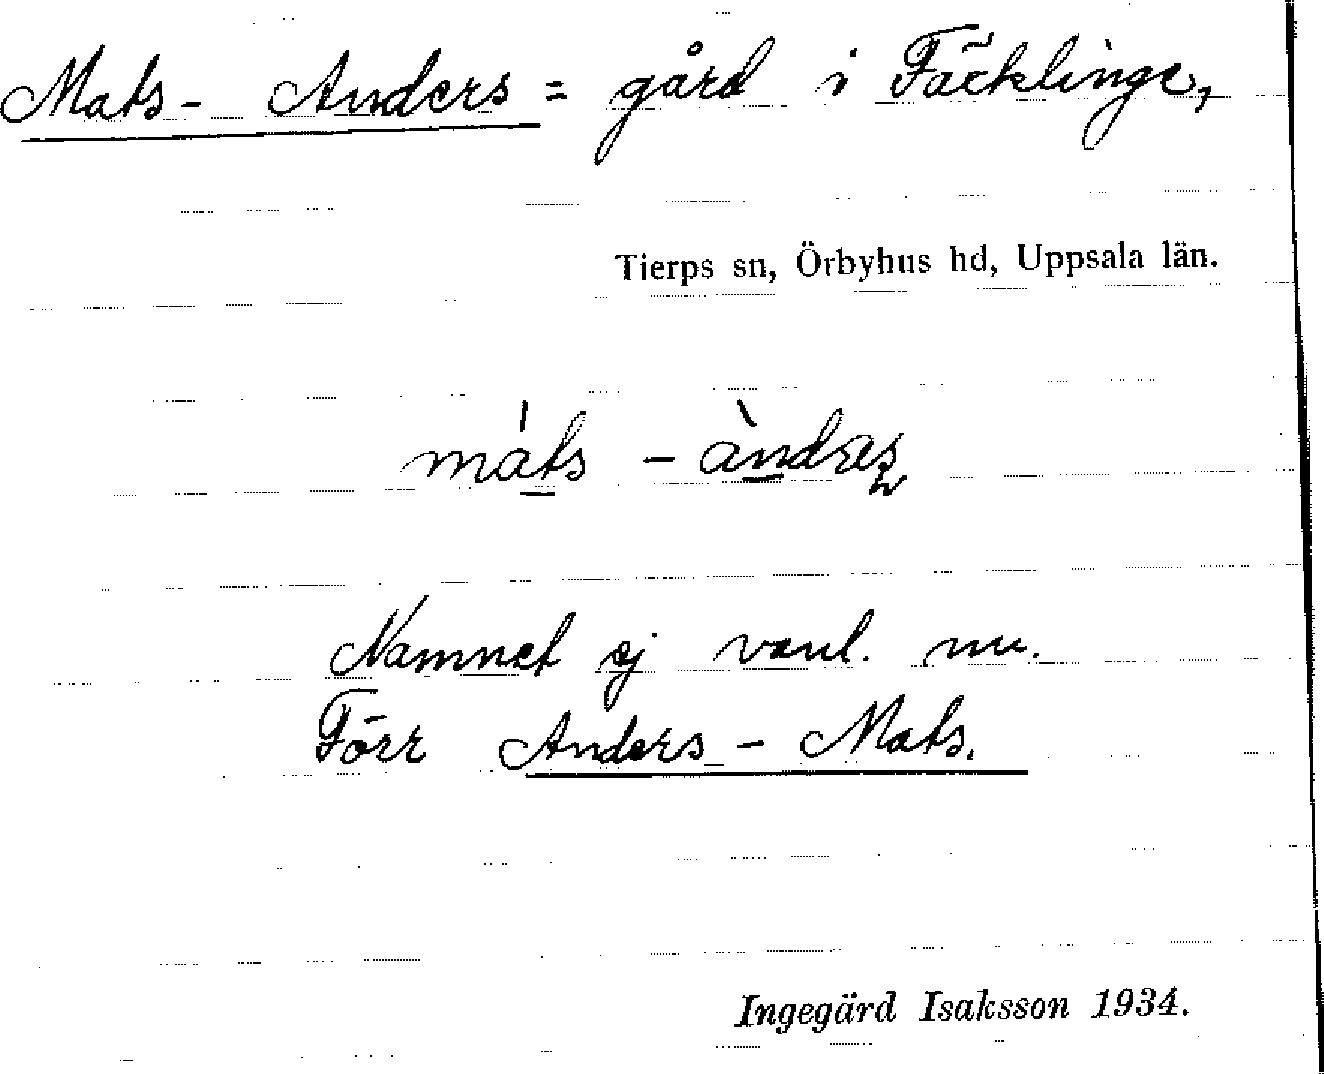 Mats- Anders = gård i Fäcklinge,
Tierps sn, Örbyhus hd, Uppsala län.
máts - àndræs
Namnet ej vanl. nu.
Förr Anders - Mats.
Ingegärd Isaksson 1934.